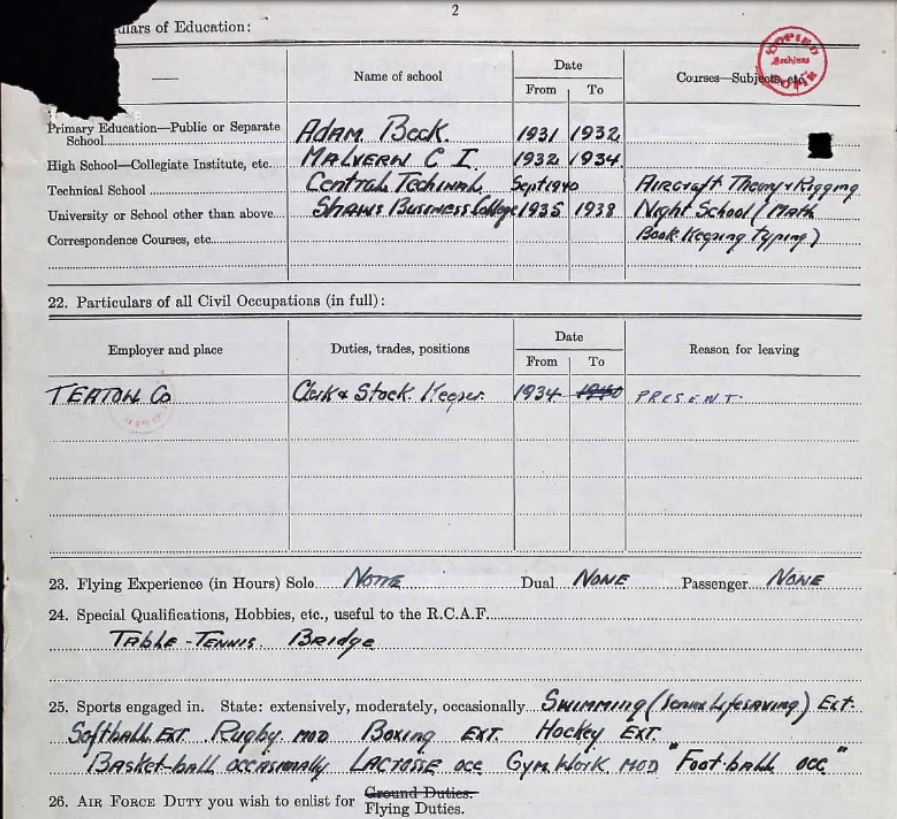 2
ulars of Education:
COPIED
Archives
Name of school
Date
From To
Courses—Subjects, etc.
Primary Education—Public or Separate
School ADAM Beck. 1931 1932
High School—Collegiate Institute, etc. MALVERN C I. 1932 1934
Technical School Central Techinal Sept 1940 AIRCRAFT Theory & Rigging
University or School other than above Shaws Business College 1935 1938 Night School (Math
Correspondence Courses, etc. Book-Keeping Typing)
22. Particulars of all Civil Occupations (in full):
Employer and place
Duties, trades, positions
Date
From To
Reason for leaving
T EATON Co Clerk & Stock Keeper 1934 1940 PRESENT
23. Flying Experience (in Hours) Solo NONE Dual NONE Passenger NONE
24. Special Qualifications, Hobbies, etc., useful to the R.C.A.F.
TABLE-TENNIS. BRIDGE
25. Sports engaged in. State: extensively, moderately, occasionally SWIMMING (Lifesaving) Ext.
Softball EXT. Rugby MOD Boxing EXT. Hockey EXT.
"BASKET-BALL OCCASIONALLY LACROSSE OCC GYM WORK MOD "Foot-ball OCC"
26. AIR FORCE DUTY you wish to enlist for Ground Duties.
Flying Duties.